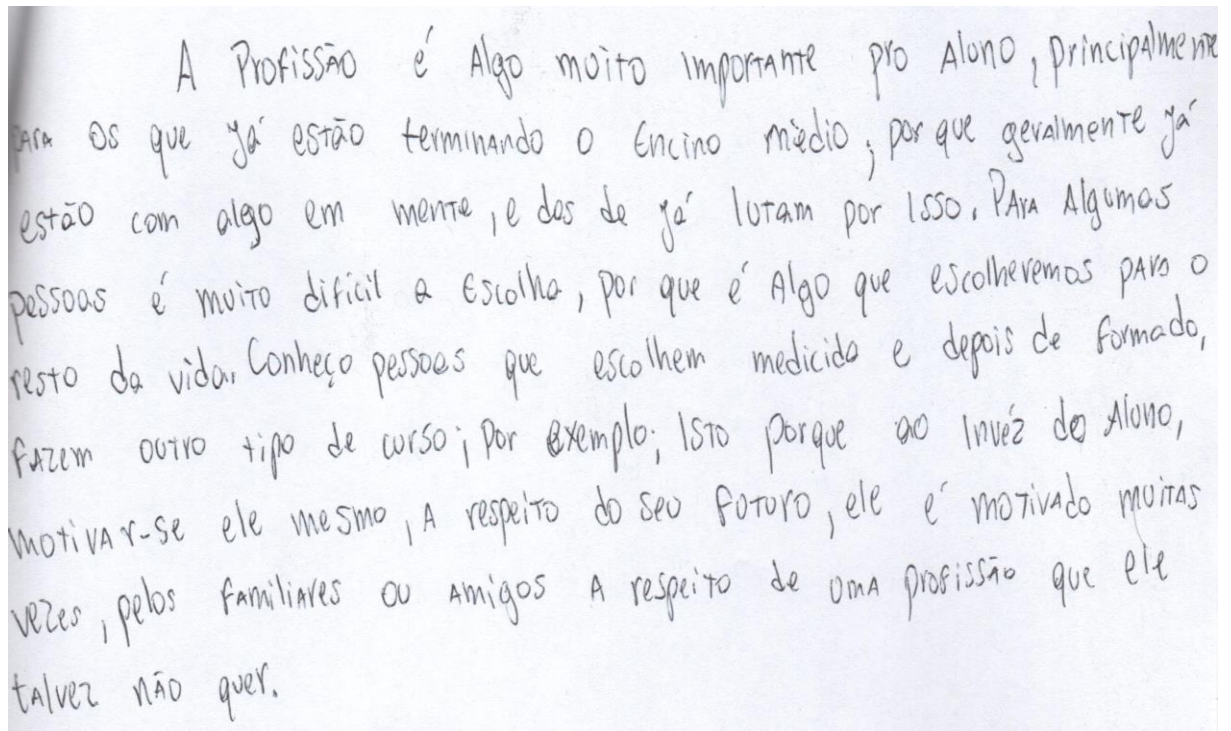 A Profissão é Algo muito importante pro Aluno, principalmente
para os que já estão terminando o Encino médio, por que geralmente já
estão com algo em mente, e des de já lutam por isso. Para Algumas
pessoas é muito dificil a Escolha, por que é Algo que escolheremos para o
resto da vida. Conheço pessoas que escolhem medicida e depois de formado,
fazem outro tipo de curso; por exemplo; Isto porque ao invéz do Aluno,
motivar-se ele mesmo, A respeito do seu futuro, ele é motivado muitas
vezes, pelos familiares ou amigos A respeito de uma profissão que ele
talvez não quer.